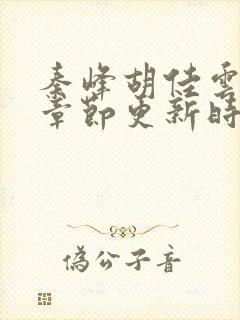 秦峰胡佳雲
章節更新時
偽公子音